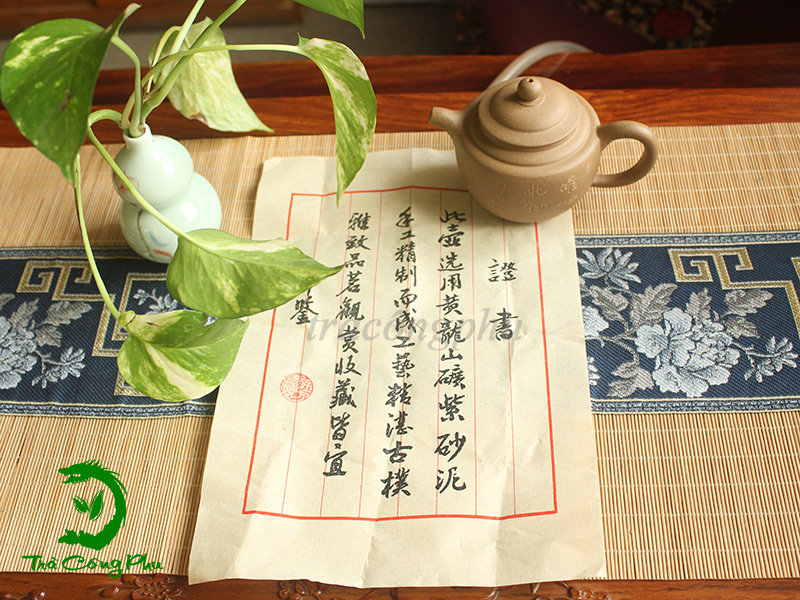 證書
此壺选用黄龍山礦紫砂泥
手工精制而成工藝精湛古樸
雅致品茗觀赏收藏皆宜
鉴
tracongphu
Trà Công Phu